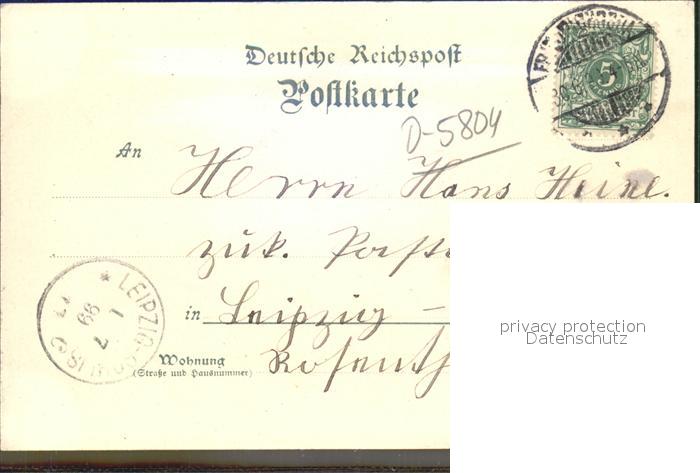 Deutsche Reichspost
Postkarte
D-5804
An
Herrn Hans Heine.
zuk. Post
in Leipzig –
Wohnung
(Straße und Hausnummer)
Rosenth
LEIPZIG
1 7
99
5
privacy protection
Datenschutz